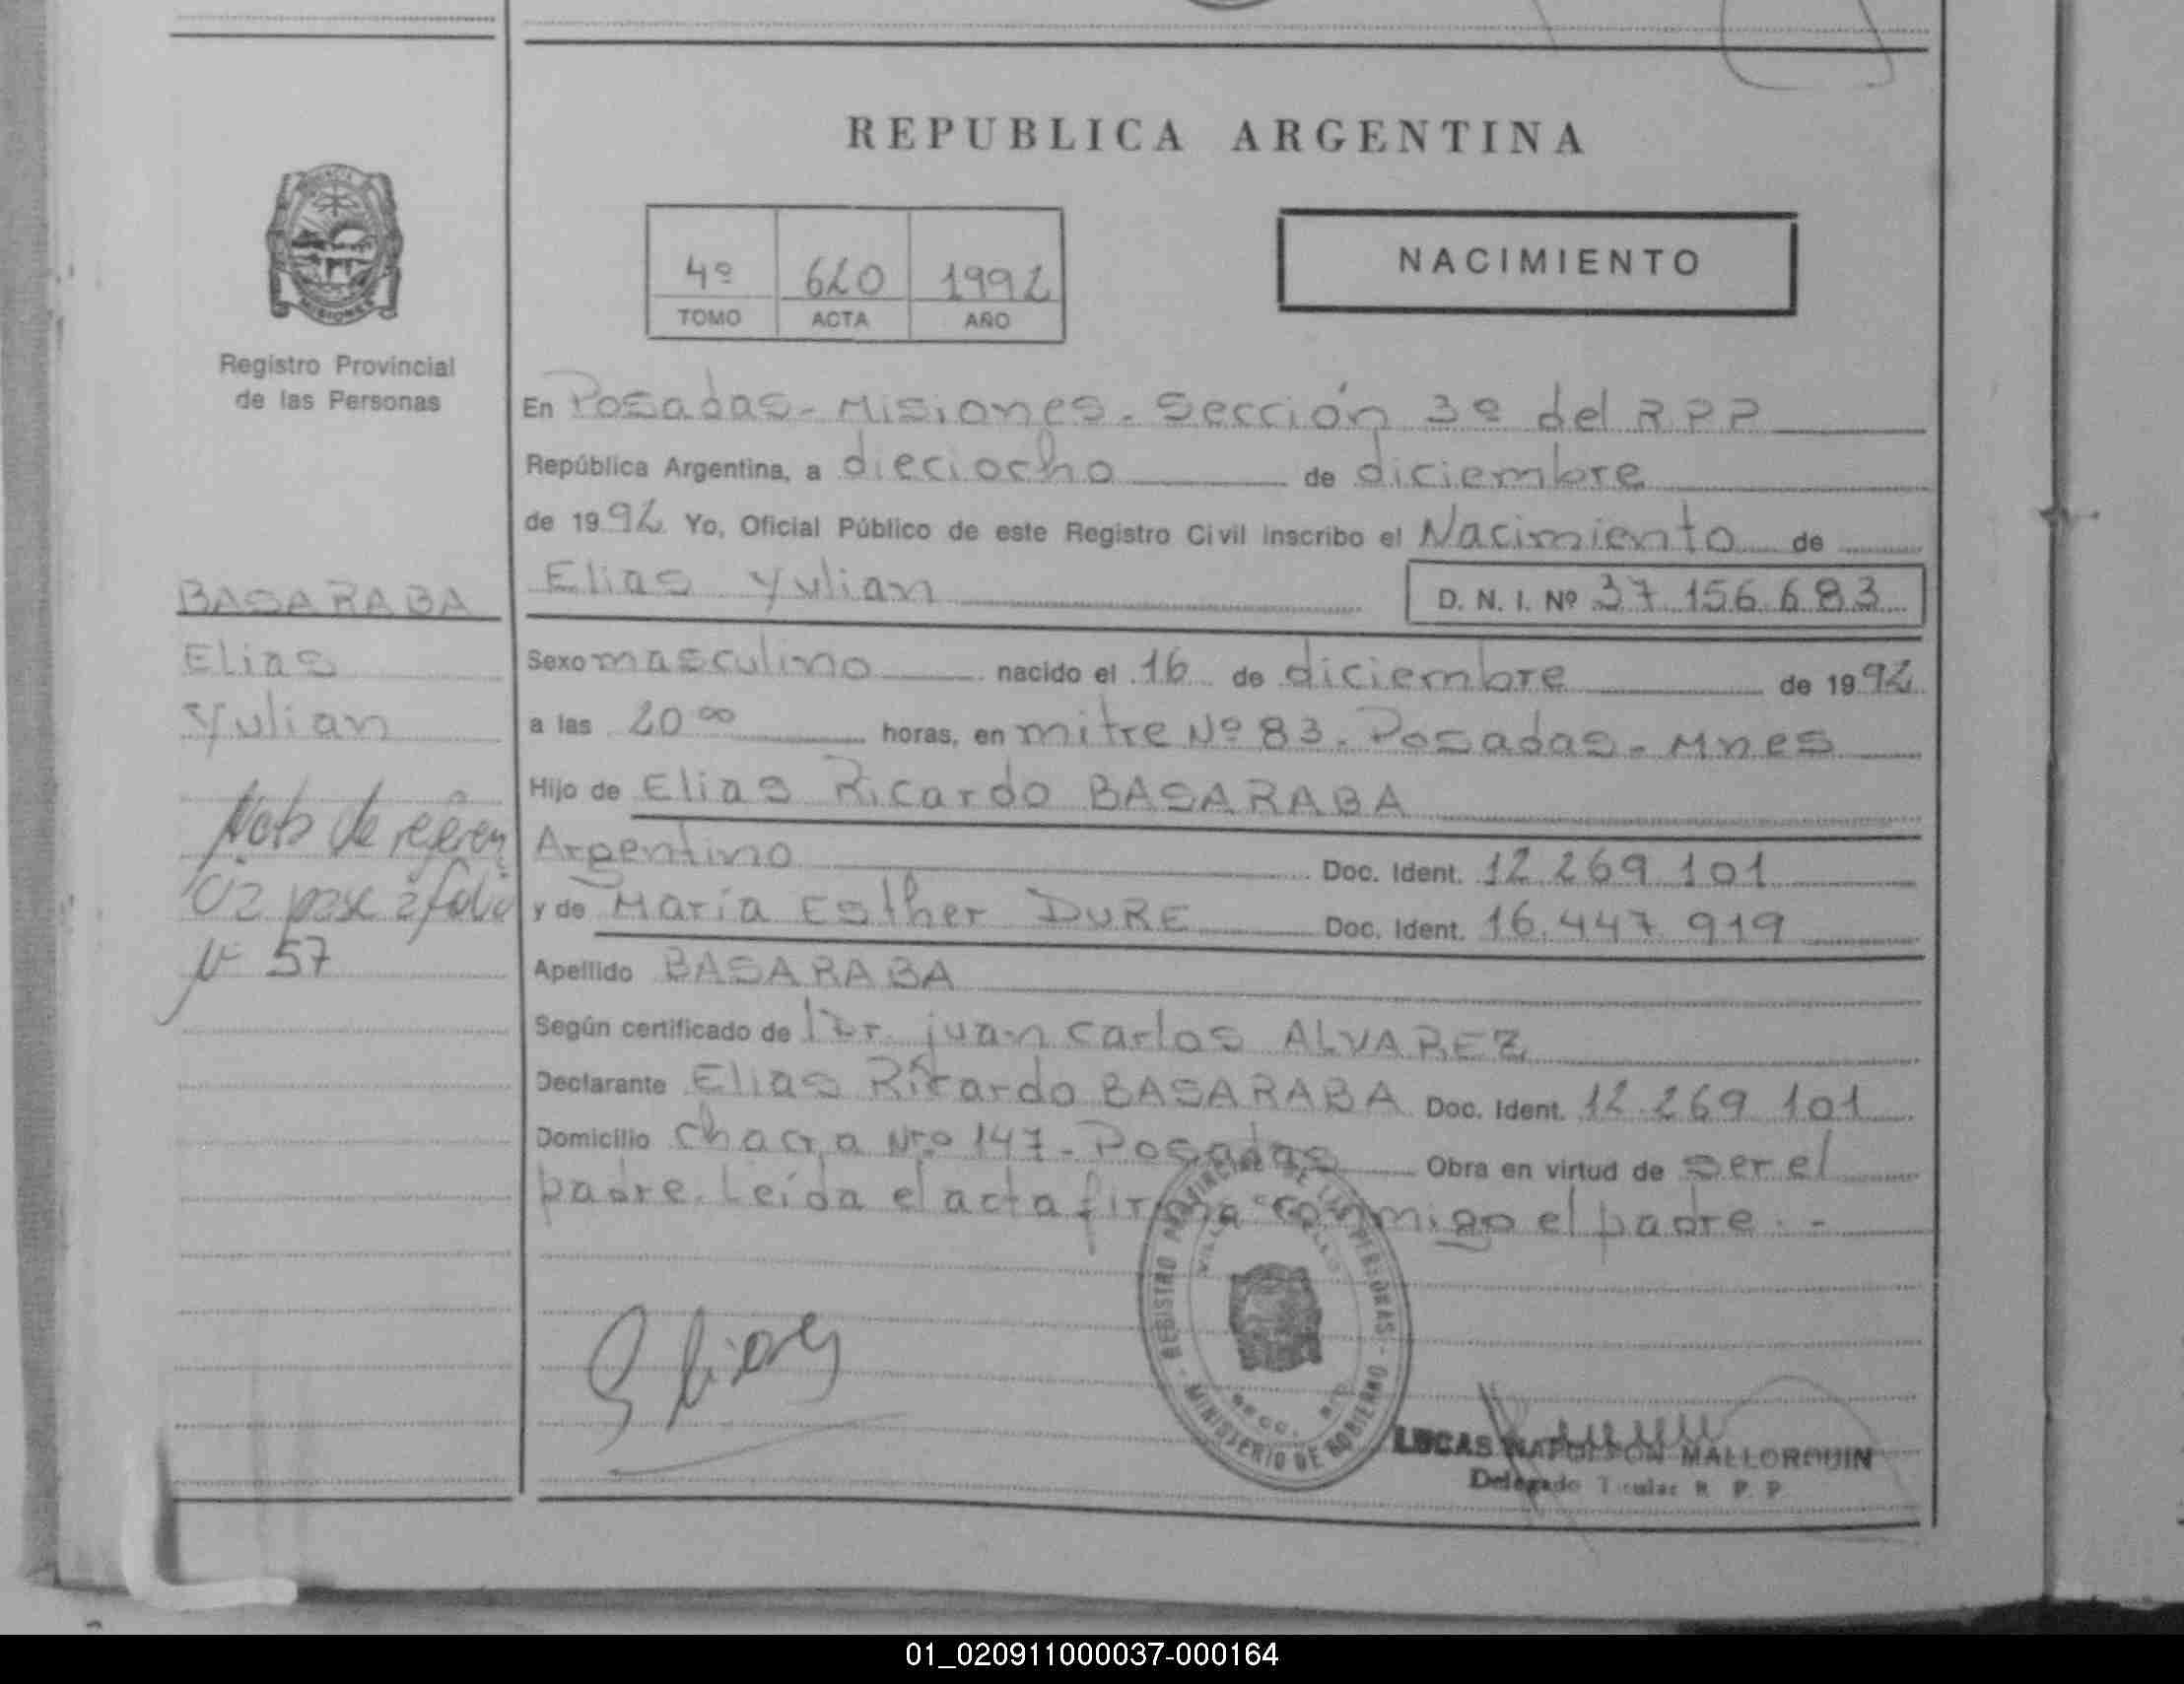 REPUBLICA ARGENTINA
4º 620 1992
TOMO ACTA AÑO
NACIMIENTO
MISIONES
Registro Provincial
de las Personas
BASARABA
Elias
Yulian
Nota de referen
cia pase a folio
Nº 57
En Posadas - Misiones - Sección 3º del R P P
República Argentina, a dieciocho de diciembre
de 1992 Yo, Oficial Público de este Registro Civil inscribo el Nacimiento de
Elias Yulian D. N. I. Nº 37.156.683
Sexo masculino nacido el 16 de diciembre de 1992
a las 20 00 horas, en mitre Nº 83. Posadas - Mnes
Hijo de Elias Ricardo BASARABA
Argentino Doc. Ident. 12 269 101
y de María Esther DURE Doc. Ident. 16.447 919
Apellido BASARABA
Según certificado de Dr. juan carlos ALVAREZ
Declarante Elias Ricardo BASARABA Doc. Ident. 12.269 101
Domicilio chacra Nro 147 - Posadas Obra en virtud de ser el
padre. Leída el acta firma conmigo el padre. -
REGISTRO PROVINCIAL DE LAS PERSONAS - MINISTERIO DE GOBIERNO -
Elias
LUCAS NAPOLEON MALLORQUIN
Delegado Titular R. P. P.
01_020911000037-000164